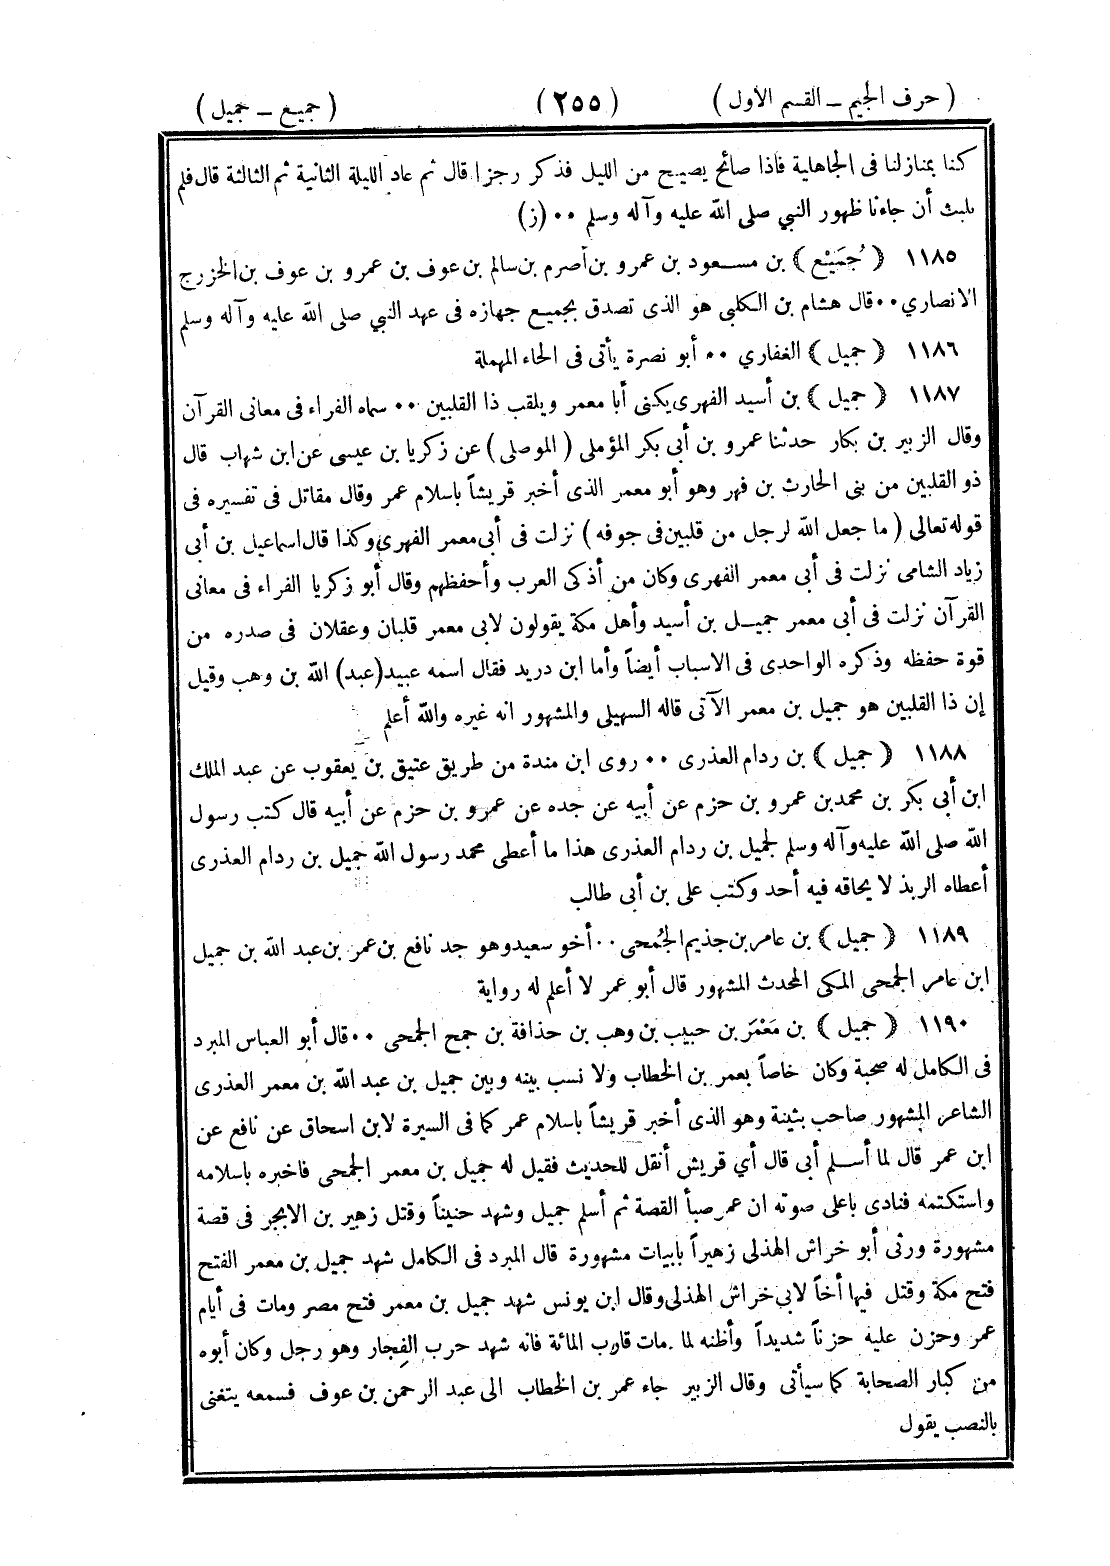 ( حرف الجيم ــ القسم الأول ) ( ٢٥٥ ) ( جميع ــ جميل )
كنا بمنازلنا فى الجاهلية فاذا صائح يصيح من الليل فذكر رجزا قال ثم عاد الليلة الثانية ثم الثالثة قال فلم
يلبث أن جاءنا ظهور النبي صلى الله عليه وآله وسلم ٠٠ (ز)
١١٨٥ ﴿ جُمَيْع ﴾ بن مسعود بن عمرو بن أصرم بن سالم بن عوف بن عمرو بن عوف بن الخزرج
الانصاري ٠٠ قال هشام بن الكلبي هو الذى تصدق بجميع جهازه فى عهد النبي صلى الله عليه وآله وسلم
١١٨٦ ﴿ جميل ﴾ الغفاري ٠٠ أبو نصرة يأتى فى الحاء المهملة
١١٨٧ ﴿ جميل ﴾ بن أسيد الفهرى يكنى أبا معمر ويلقب ذا القلبين ٠٠ سماه الفراء فى معانى القرآن
وقال الزبير بن بكار حدثنا عمرو بن أبي بكر المؤملى ( الموصلى ) عن زكريا بن عيسى عن ابن شهاب قال
ذو القلبين من بنى الحارث بن فهر وهو أبو معمر الذى أخبر قريشاً باسلام عمر وقال مقاتل فى تفسيره فى
قوله تعالى ( ما جعل الله لرجل من قلبين فى جوفه ) نزلت فى أبى معمر الفهرى وكذا قال اسماعيل بن أبى
زياد الشامى نزلت فى أبى معمر الفهرى وكان من أذكى العرب وأحفظهم وقال أبو زكريا الفراء فى معانى
القرآن نزلت فى أبى معمر جميل بن أسيد وأهل مكة يقولون لابى معمر قلبان وعقلان فى صدره من
قوة حفظه وذكره الواحدى فى الاسباب أيضاً وأما ابن دريد فقال اسمه عبيد (عبد) الله بن وهب وقيل
إن ذا القلبين هو جميل بن معمر الآتى قاله السهيلى والمشهور انه غيره والله أعلم
١١٨٨ ﴿ جميل ﴾ بن ردام العذرى ٠٠ روى ابن مندة من طريق عتيق بن يعقوب عن عبد الملك
ابن أبي بكر بن محمد بن عمرو بن حزم عن أبيه عن جده عن عمرو بن حزم عن أبيه قال كتب رسول
الله صلى الله عليه وآله وسلم لجميل بن ردام العذرى هذا ما أعطى محمد رسول الله جميل بن ردام العذرى
أعطاه الربذ لا يحاقه فيه أحد وكتب على بن أبى طالب
١١٨٩ ﴿ جميل ﴾ بن عامر بن جذيم الجُمحى ٠٠ أخو سعيد وهو جد نافع بن عمر بن عبد الله بن جميل
ابن عامر الجمحى المكى المحدث المشهور قال أبو عمر لا أعلم له رواية
١١٩٠ ﴿ جميل ﴾ بن مَعْمَر بن حبيب بن وهب بن حذافة بن جمح الجمحى ٠٠ قال أبو العباس المبرد
فى الكامل له صحبة وكان خاصاً بعمر بن الخطاب ولا نسب بينه وبين جميل بن عبد الله بن معمر العذرى
الشاعر المشهور صاحب بثينة وهو الذى أخبر قريشاً باسلام عمر كما فى السيرة لابن اسحاق عن نافع عن
ابن عمر قال لما أسلم أبى قال أي قريش أنقل للحديث فقيل له جميل بن معمر الجمحى فاخبره باسلامه
واستكتمه فنادى باعلى صوته ان عمر صبأ القصة ثم أسلم جميل وشهد حنيناً وقتل زهير بن الابجر فى قصة
مشهورة ورثى أبو خراش الهذلى زهيراً بابيات مشهورة قال المبرد فى الكامل شهد جميل بن معمر الفتح
فتح مكة وقتل فيها أخاً لابى خراش الهذلى وقال ابن يونس شهد جميل بن معمر فتح مصر ومات فى أيام
عمر وحزن عليه حزناً شديداً وأظنه لما مات قارب المائة فانه شهد حرب الفِجار وهو رجل وكان أبوه
من كبار الصحابة كما سيأتى وقال الزبير جاء عمر بن الخطاب الى عبد الرحمن بن عوف فسمعه يتغنى
بالنصب يقول